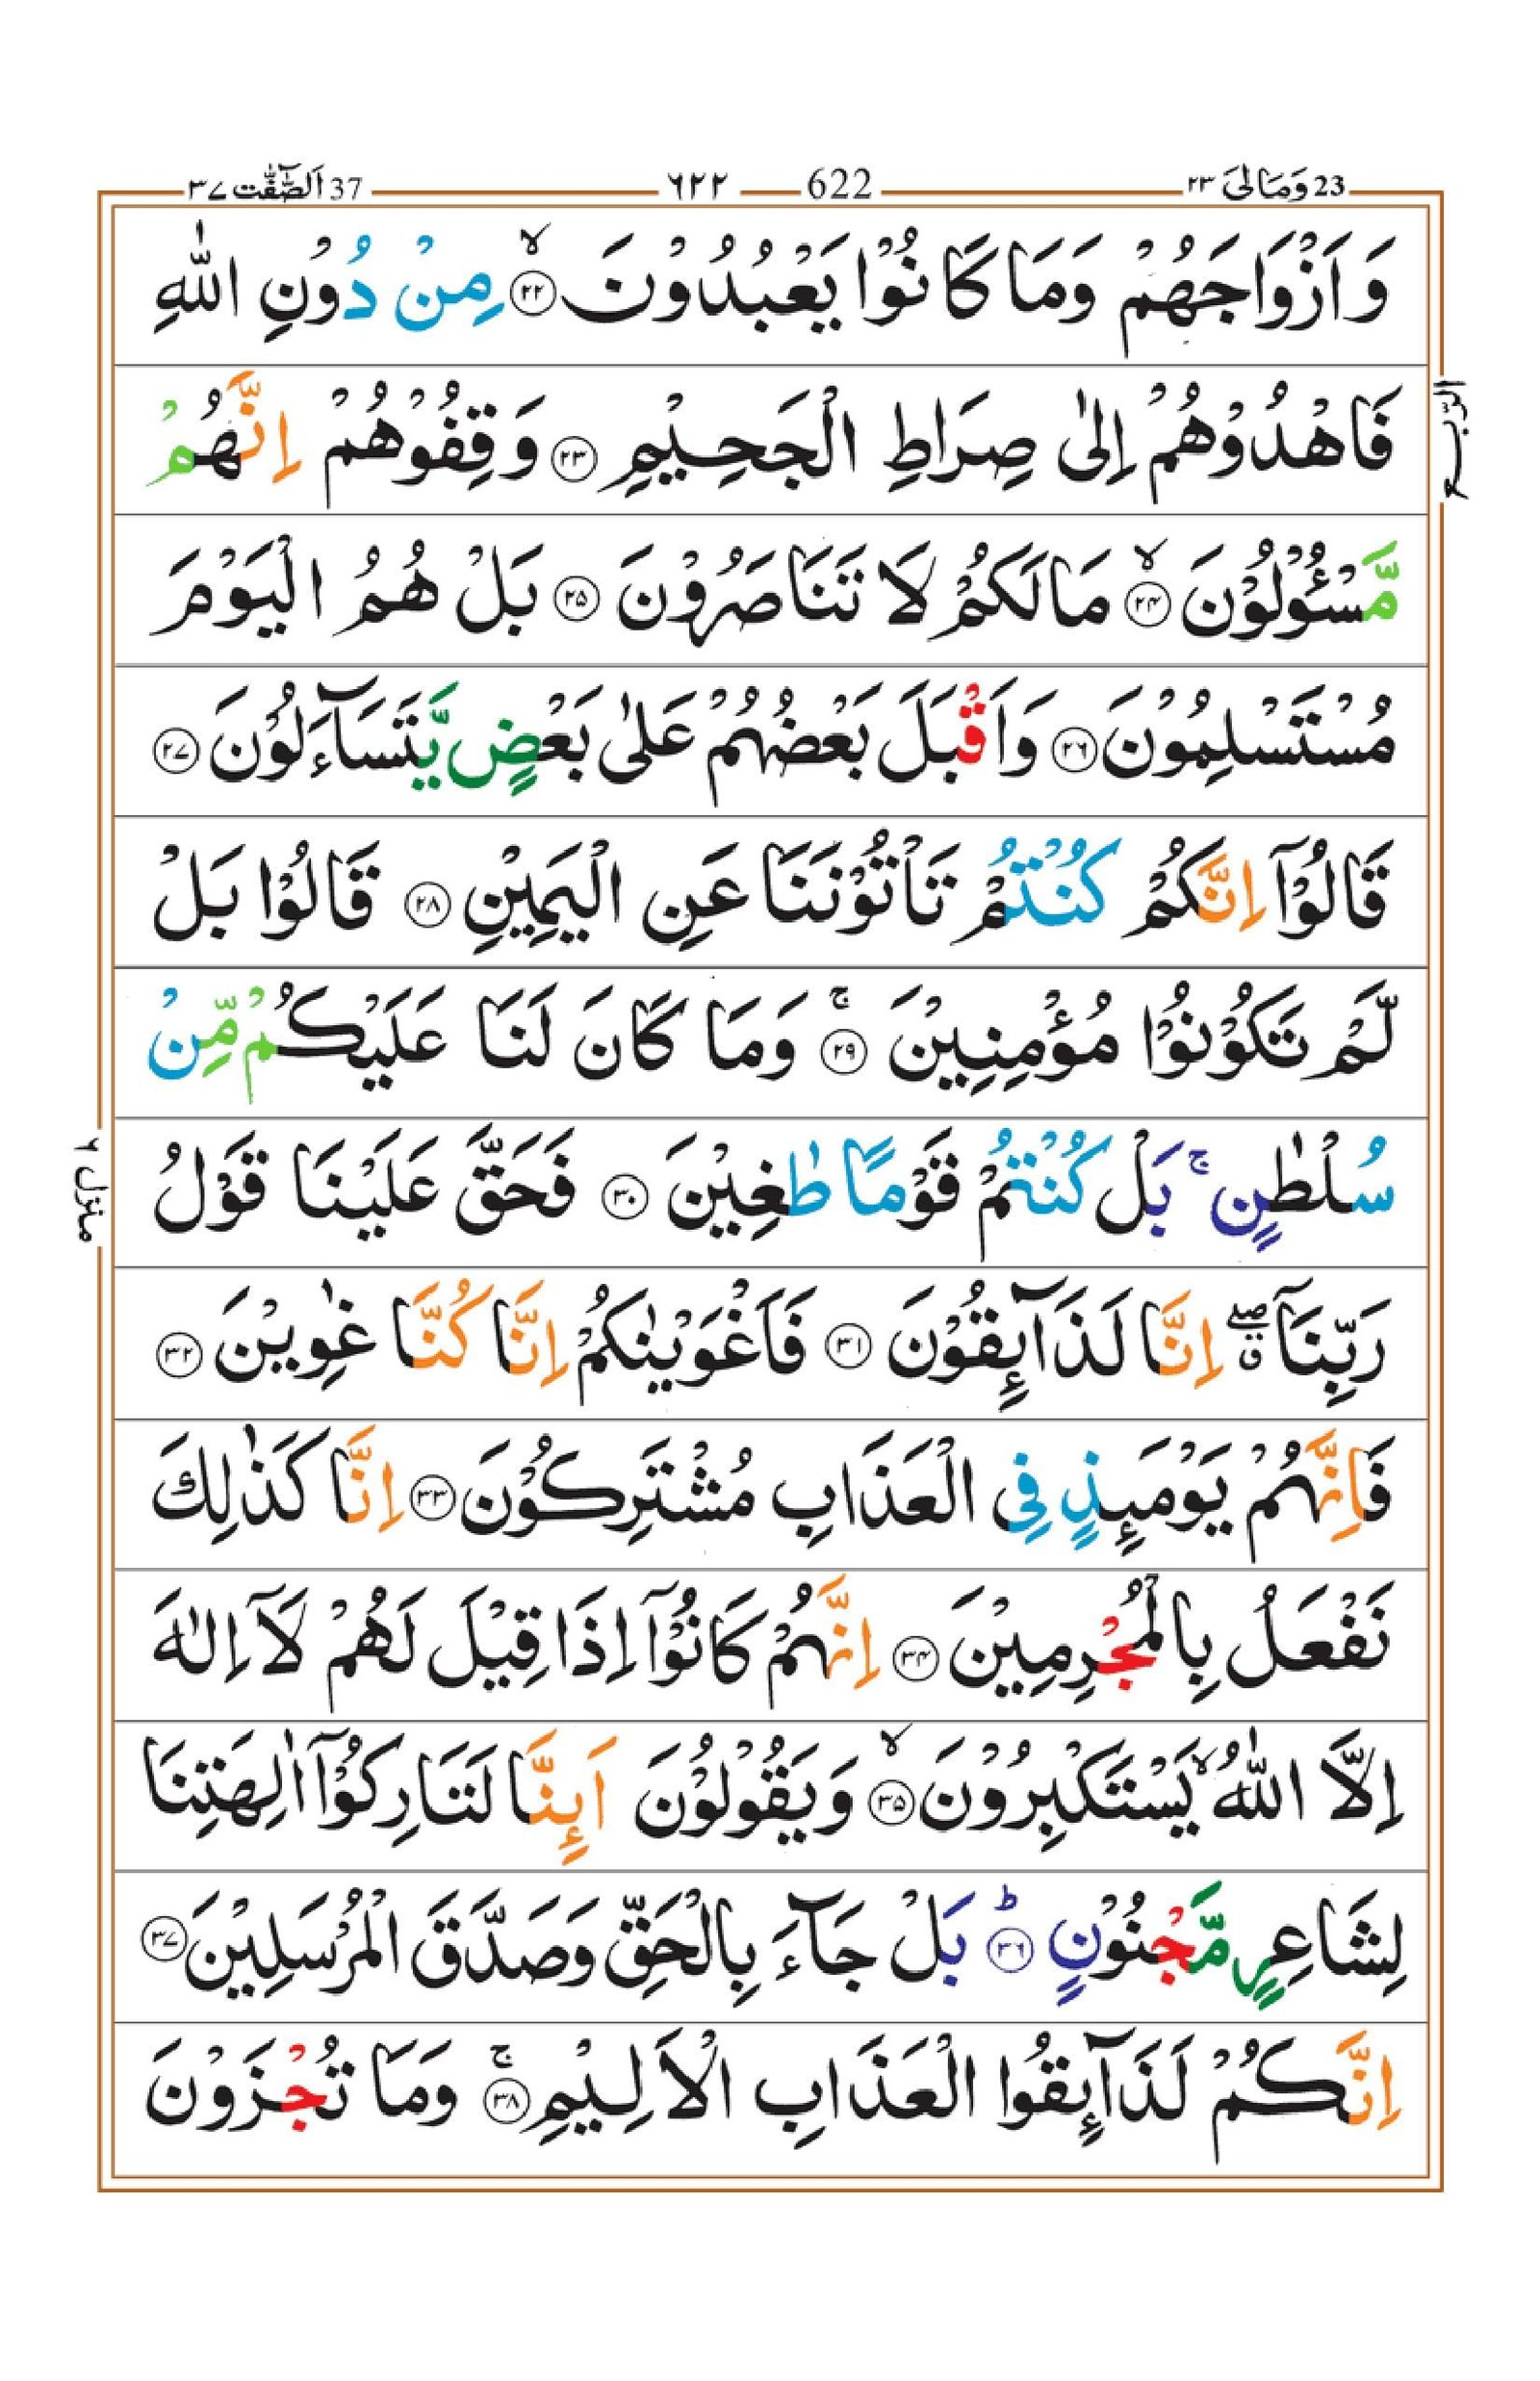 23 وَمَالِیَ ٢٣ 622 ٦٢٢ 37 اَلصّٰٓفّٰت ٣٧
وَاَزْوَاجَهُمْ وَمَا كَانُوْا يَعْبُدُوْنَ ۙ‏﴿۲۲﴾ مِنْ دُوْنِ اللّٰهِ
فَاهْدُوْهُمْ اِلٰى صِرَاطِ الْجَحِيْمِ ﴿۲۳﴾ وَقِفُوْهُمْ اِنَّهُمْ
الرّبع
مَّسْـُٔوْلُوْنَ ۙ‏﴿۲۴﴾ مَا لَكُمْ لَا تَنَاصَرُوْنَ ﴿۲۵﴾ بَلْ هُمُ الْيَوْمَ
مُسْتَسْلِمُوْنَ ﴿۲۶﴾ وَاَقْبَلَ بَعْضُهُمْ عَلٰى بَعْضٍ يَّتَسَآءَلُوْنَ ﴿۲۷﴾
قَالُوْۤا اِنَّكُمْ كُنْتُمْ تَاْتُوْنَنَا عَنِ الْيَمِيْنِ ﴿۲۸﴾ قَالُوْا بَلْ
لَّمْ تَكُوْنُوْا مُؤْمِنِيْنَ ۚ‏﴿۲۹﴾ وَمَا كَانَ لَنَا عَلَيْكُمْ مِّنْ
سُلْطٰنٍ ۚ بَلْ كُنْتُمْ قَوْمًا طٰغِيْنَ ﴿۳۰﴾ فَحَقَّ عَلَيْنَا قَوْلُ
منزل ٦
رَبِّنَاۤ ۖ ق اِنَّا لَذَآئِقُوْنَ ﴿۳۱﴾ فَاَغْوَيْنٰكُمْ اِنَّا كُنَّا غٰوِيْنَ ﴿۳۲﴾
فَاِنَّهُمْ يَوْمَئِذٍ فِى الْعَذَابِ مُشْتَرِكُوْنَ ﴿۳۳﴾ اِنَّا كَذٰلِكَ
نَفْعَلُ بِالْمُجْرِمِيْنَ ﴿۳۴﴾ اِنَّهُمْ كَانُوْۤا اِذَا قِيْلَ لَهُمْ لَاۤ اِلٰهَ
اِلَّا اللّٰهُ ۙ يَسْتَكْبِرُوْنَ ۙ‏﴿۳۵﴾ وَيَقُوْلُوْنَ اَئِنَّا لَتَارِكُوْۤا اٰلِهَتِنَا
لِشَاعِرٍ مَّجْنُوْنٍ ؕ‏﴿۳۶﴾ بَلْ جَآءَ بِالْحَقِّ وَصَدَّقَ الْمُرْسَلِيْنَ ﴿۳۷﴾
اِنَّكُمْ لَذَآئِقُوا الْعَذَابِ الْاَلِيْمِ ۚ‏﴿۳۸﴾ وَمَا تُجْزَوْنَ